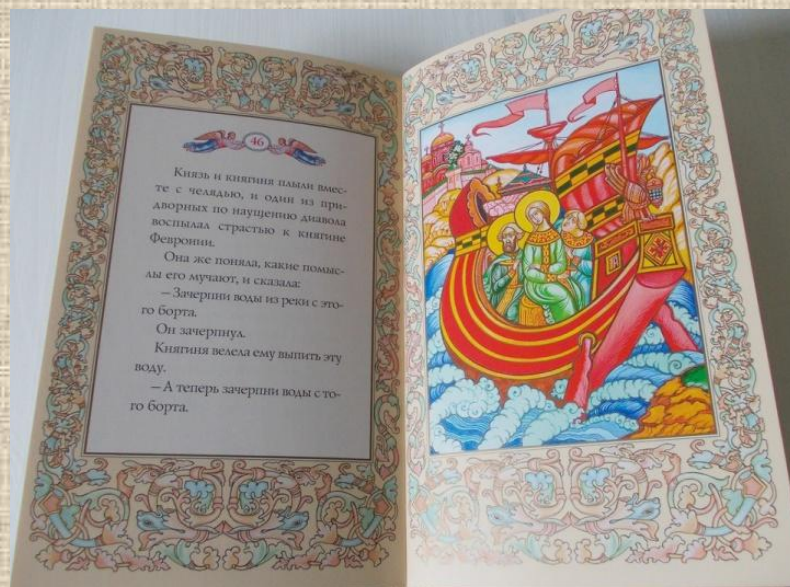 46
Князь и княгиня плыли вмес-
те с челядью, и один из при-
дворных по наущению диавола
воспылал страстью к княгине
Февронии.
Она же поняла, какие помыс-
лы его мучают, и сказала:
— Зачерпни воды из реки с это-
го борта.
Он зачерпнул.
Княгиня велела ему выпить эту
воду.
— А теперь зачерпни воды с то-
го борта.